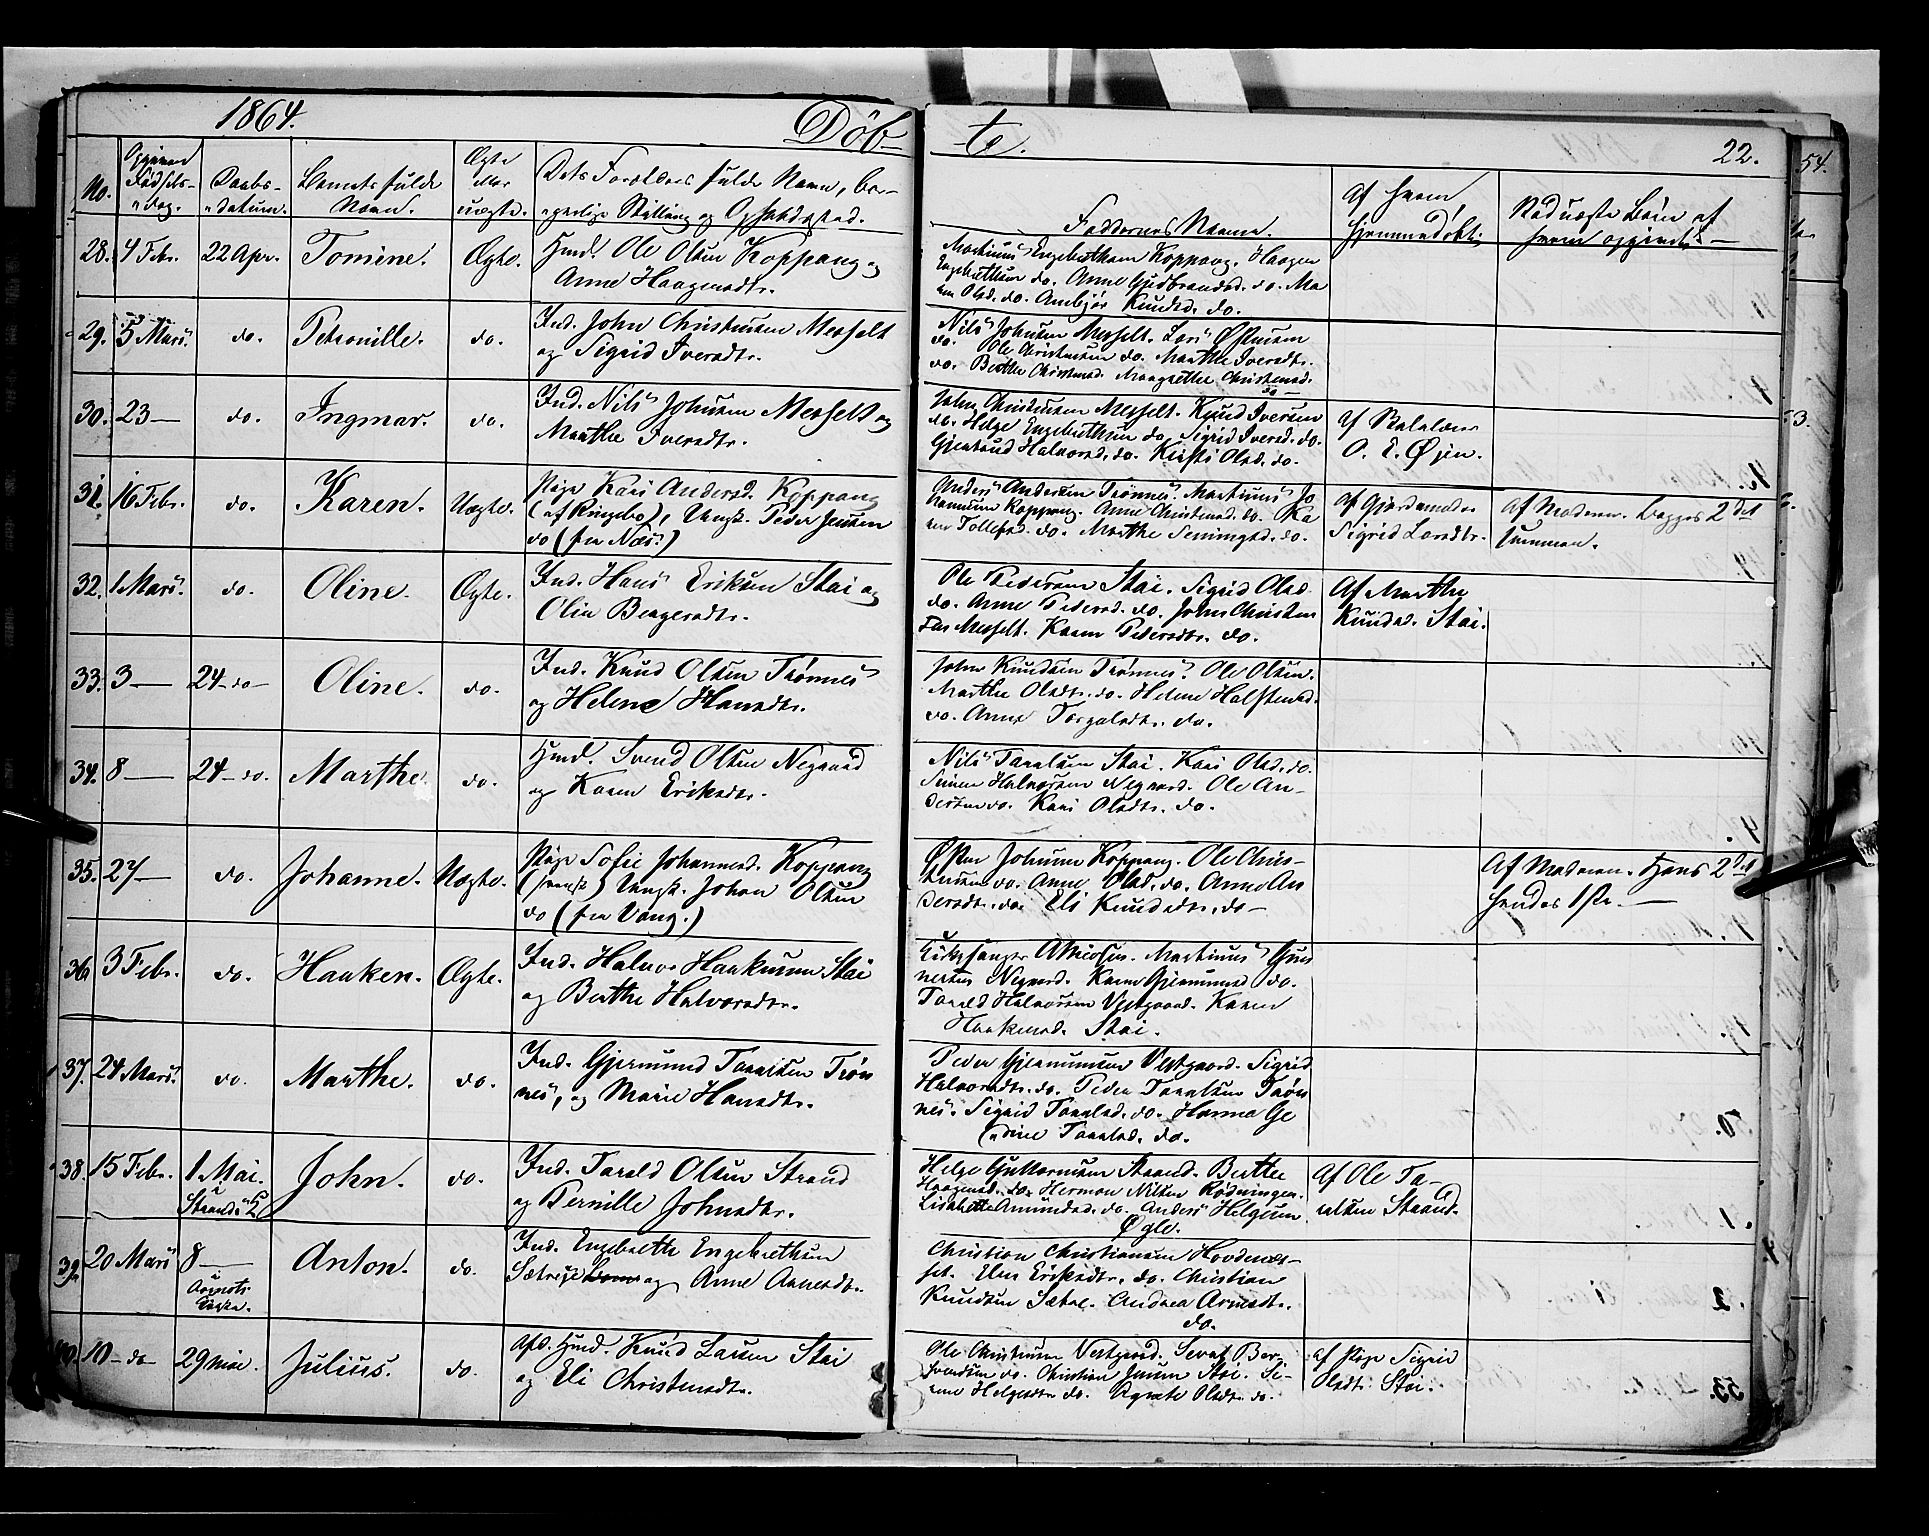 1864. Døb- te. 22. 54.
No. Opgiven Fødsels- dag. Daabs- datum. Barnets fulde Navn. Ægte eller uægte. Dets Forældres fulde Navn, bor- gerlige Stilling og Opholdssted. Faddernes Navne. Af hvem hjemmedøbt. Nodnægte Børn af hvem opgivet.
28. 4 Febr. 22 Apr. Tomine. Ægte. Hmd. Ole Olsen Koppang og
Anne Haagensdtr.
Martinus Engebrethsen Koppang. Haagen
Engebrethsen do. Anne Gudbrandsd. do. Ma
ren Olsd. do. Ambjør Knudsd. do.
29. 5 Mars. do. Petronille. do. Ind. John Christensen Messelt
og Sigrid Iversdtr.
Nils Johnsen Messelt. Lars Østensen
do. Ole Christensen do. Marthe Iversdtr.
do. Berthe Christensd. Margrethe Christensd.
do
30. 23 — do. Ingmar. do. Ind. Nils Johnsen Messelt og
Marthe Iversdtr.
John Christensen Messelt. Knud Iversen
do. Helge Engebrethsen do. Sigrid Iversd. do.
Gjertrud Halvorsd. do. Kirsti Olsd. do.
Af Skolelærer
O. E. Øjen.
31. 16 Febr. do. Karen. Uægte. Pige Kari Andersd. Koppang
(af Ringebo), Ungk. Peder Jensen
do (fra Næs.)
Anders Andersen Trønnes. Martinus Jo
hannesen Koppang. Anne Christensd. do. Ka
ren Tollefsd. do. Marthe Simensd. do.
Af Gjordemoder
Sigrid Larsdtr.
Af Moderen. Begges 2det
sammen.
32. 1 Mars. do. Oline. Ægte. Ind. Hans Eriksen Stai og
Olia Bergersdtr.
Ole Pedersen Stai. Sigrid Olsd.
do. Anne Pedersd. do. John Christen
sen Messelt. Karen Pedersdtr. do.
Af Marthe
Knudsd. Stai.
33. 3 — 24 - do - Oline. do. Ind. Knud Olsen Trønnes
og Helene Hansdtr.
John Knudsen Trønnes. Ole Olsen.
Marthe Olsdtr. do. Helene Halstensd.
do. Anne Torgalsdtr. do.
34. 8 — 24 - do. Marthe. do. Hmd. Svend Olsen Negaard
og Karen Eriksdtr.
Nils Taralsen Stai. Kari Olsd. do.
Simen Halvorsen Negaard. Ole An-
dersen do. Kari Olsdtr. do.
35. 27 — do. Johanne. Uægte. Pige Sofie Johannesd. Koppang
(svensk) Ungk. Johan Olsen
do (fra Vang.)
Østen Johnsen Koppang. Ole Chris-
tensen do. Anne Olsd. do. Anne An
dersdtr. do. Eli Knudsdtr. do —
Af Moderen. Hans 2det
hendes 1ste. —
36. 3 Febr. do. Haaken. Ægte. Ind. Halvor Haakensen Stai
og Berthe Halvorsdtr.
Kirkesanger Martinus Gun
nersen Negaard. Karen Gjermunsd do.
Tarald Halvorsen Vestgaard. Karen
Haakensd. Stai.
37. 24 Mars. do. Marthe. do. Ind. Gjermund Taralsen Trøn
nes, og Marie Hansdtr.
Peder Gjermunsen Vestgaard. Sigrid
Halvorsdtr. do. Peder Taralsen Trøn
nes. Sigrid Taralsd. do. Hanna Ge
rdine Taralsd. do.
38. 15 Febr. 1 Mai. i Strands K. John. do. Ind. Tarald Olsen Strand
og Pernille Johnsdtr.
Helge Guttormsen Strand. Berthe
Haagensd. do. Herman Nilsen Rødningen.
Lisabette Amundsd. do. Anders Helgesen
Øgle.
Af Ole Ta-
ralsen Strand.
39. 20 Mars 8 — i Kirke. Anton. do. Ind. Engebrette Engebrethsen
Sætre og Anne Arnesdtr.
Christian Christiansen Hovdenæs-
set. Elen Eriksdtr. do. Christian
Knudsen Sætre. Andrea Arnesdtr.
do.
40. 10 - do - 29 Julius. do Hmd. Knud Larsen Stai
og Eli Christensdtr.
Ole Christensen Vestgaard. Ber-
do. Christian Jensen Stai. Si-
Helgesdtr. do. Agnete Olsdtr. do.
Af Pige Sigrid
Olsdtr. Stai.